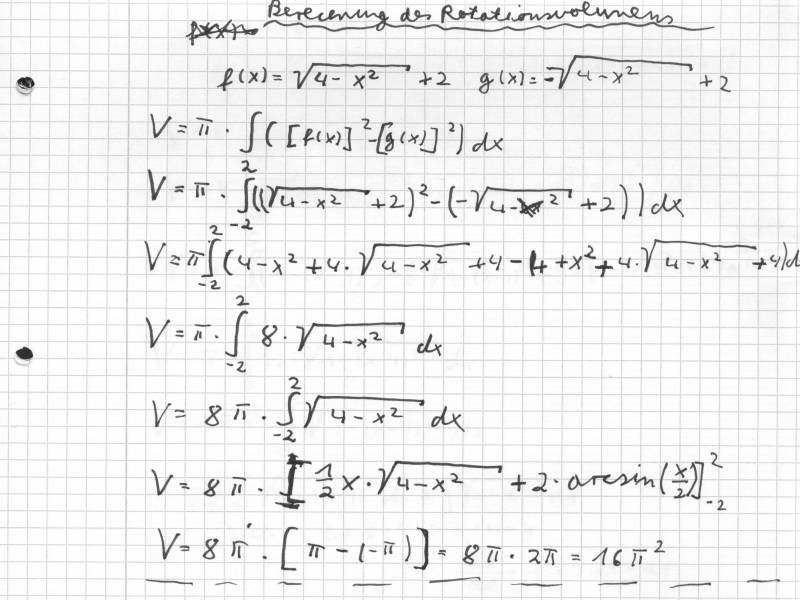 Berechnung des Rotationsvolumens
f(x) = √(4 - x²) + 2 g(x) = -√(4 - x²) + 2
V = π · ∫([f(x)]² - [g(x)]²) dx
V = π · ∫₋₂² ((√(4 - x²) + 2)² - (-√(4 - x²) + 2)) dx
V = π ∫₋₂² (4 - x² + 4 · √(4 - x²) + 4 - 4 + x² + 4 · √(4 - x²) + 4) d
V = π · ∫₋₂² 8 · √(4 - x²) dx
V = 8 π · ∫₋₂² √(4 - x²) dx
V = 8 π · [½ x · √(4 - x²) + 2 · arcsin(x/2)]₋₂²
V = 8 π · [π - (-π)] = 8 π · 2π = 16 π²